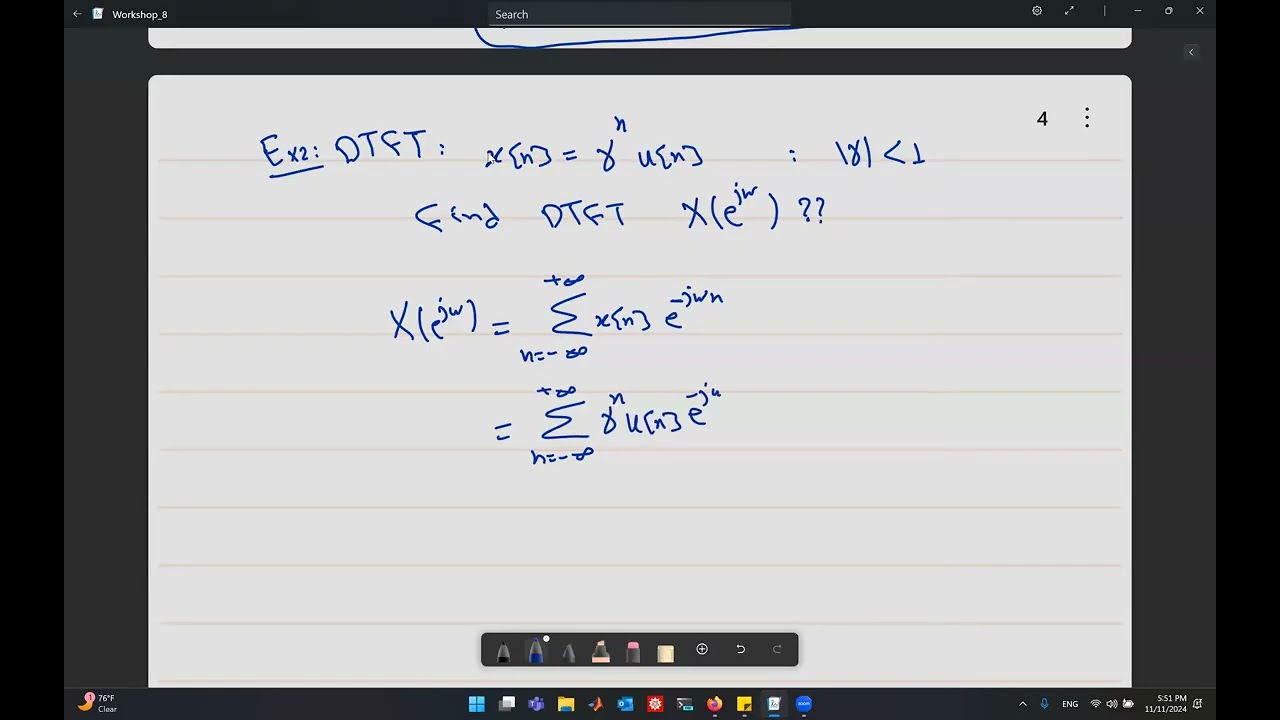 Workshop_8
Search
4
Ex2: DTFT: x[n] = γ^n u[n] : |γ| < 1
Find DTFT X(e^{jω}) ??
X(e^{jω}) = ∑_{n=-∞}^{+∞} x[n] e^{-jωn}
= ∑_{n=-∞}^{+∞} γ^n u[n] e^{-jω}
1
76°F
Clear
ENG
5:51 PM
11/11/2024